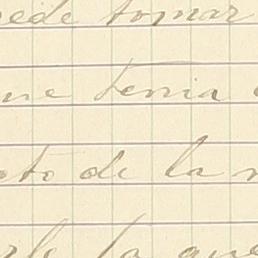 ede tomar
ue tenia
to de la
la que